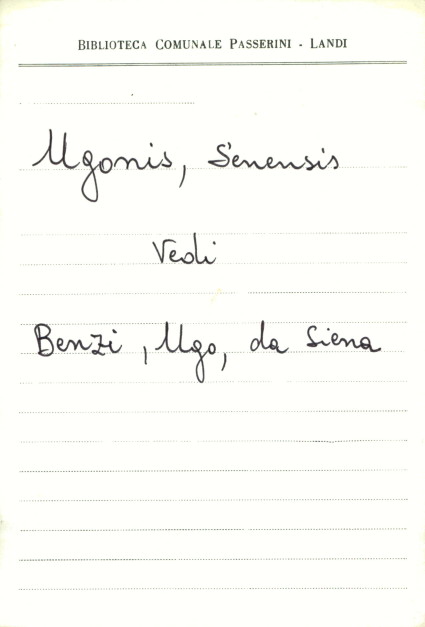 BIBLIOTECA COMUNALE PASSERINI - LANDI
Ugonis, Senensis
Vedi
Benzi, Ugo, da Siena